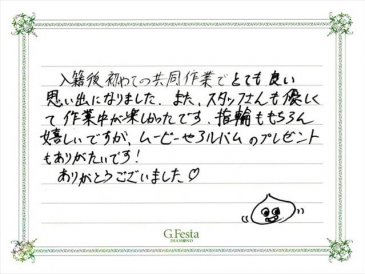 入籍後初めての共同作業でとても良い
思い出になりました. また、スタッフさんも優しく
て作業中が楽しかったです. 指輪ももちろん
嬉しいですが、ムービーやアルバムのプレゼント
もありがたいです!
ありがとうございました♡
G.Festa
DIAMOND